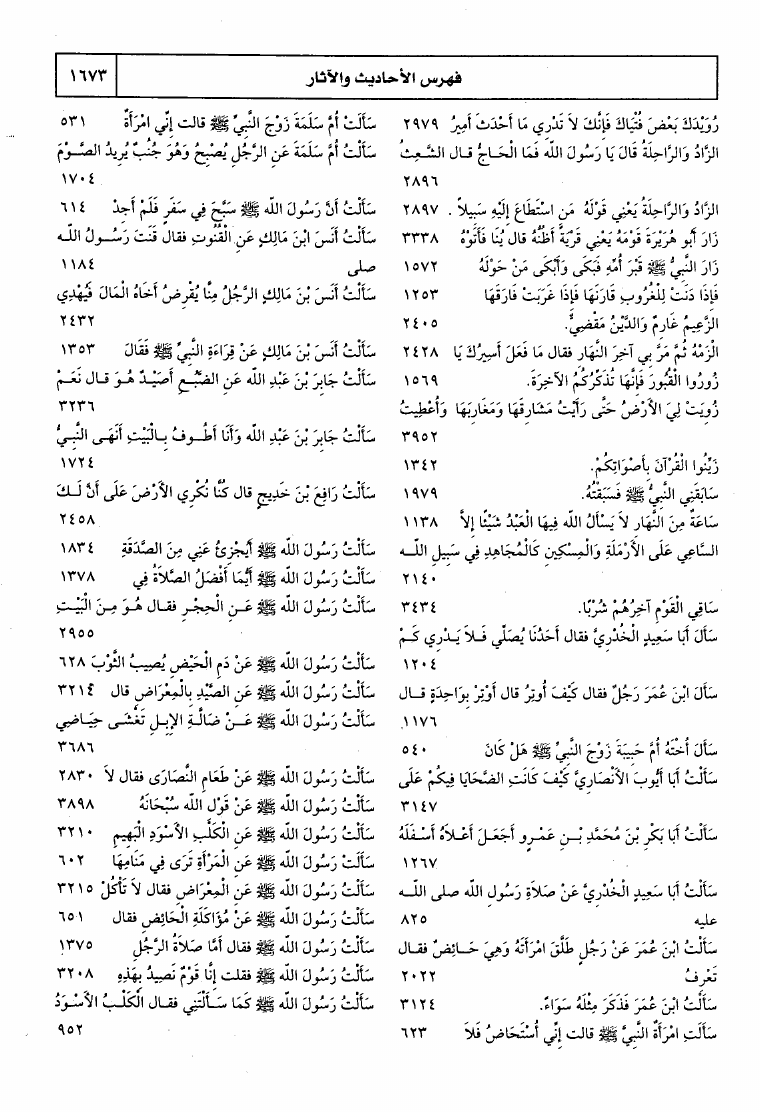 فهرس الأحاديث والآثار
١٦٧٣
رُوَيْدَكَ بَعْضَ فُتْيَاكَ فَإِنَّكَ لاَ تَدْرِي مَا أَحْدَثَ أَمِيرُ ٢٩٧٩
الزَّادُ وَالرَّاحِلَةُ قَالَ يَا رَسُولَ اللّه فَمَا الْحَاجُّ قـال الشَّعِثُ
٢٨٩٦
الزَّادُ وَالرَّاحِلَةُ يَعْنِي قَوْلَهُ مَن اسْتَطَاعَ إِلَيْهِ سَبِيلاً . ٢٨٩٧
زَارَ أَبُو هُرَيْرَةَ قَوْمَهُ يَعْنِي قَرْيَةً أَظُنُّهُ قال يُنَا فَأَتَوْهُ ٣٣٣٨
زَارَ النَّبِيُّ ﷺ قَبْرَ أُمِّهِ فَبَكَى وَأَبْكَى مَنْ حَوْلَهُ ١٥٧٢
فَإِذَا دَنَتْ لِلْغُرُوبِ قَارَنَهَا فَإِذَا غَرَبَتْ فَارَقَهَا ١٢٥٣
الزَّعِيمُ غَارِمٌ وَالدَّيْنُ مَقْضِيٌّ. ٢٤٠٥
الْزَمْهُ ثُمَّ مَرَّ بِي آخِرَ النَّهَارِ فقال مَا فَعَلَ أَسِيرُكَ يَا ٢٤٢٨
زُورُوا الْقُبُورَ فَإِنَّهَا تُذَكِّرُكُمُ الآخِرَةَ. ١٥٦٩
زُوِيَتْ لِيَ الأَرْضُ حَتَّى رَأَيْتُ مَشَارِقَهَا وَمَغَارِبَهَا وَأُعْطِيتُ
٣٩٥٢
زَيِّنُوا الْقُرْآنَ بِأَصْوَاتِكُمْ. ١٣٤٢
سَابَقَنِي النَّبِيُّ ﷺ فَسَبَقْتُهُ. ١٩٧٩
سَاعَةٌ مِنَ النَّهَارِ لاَ يَسْأَلُ اللّه فِيهَا الْعَبْدُ شَيْئًا إِلاَّ ١١٣٨
السَّاعِي عَلَى الأَرْمَلَةِ وَالْمِسْكِينِ كَالْمُجَاهِدِ فِي سَبِيلِ اللّـه
٢١٤٠
سَاقِي الْقَوْمِ آخِرُهُمْ شُرْبًا. ٣٤٣٤
سَأَلَ أَبَا سَعِيدٍ الْخُدْرِيَّ فقال أَحَدُنَا يُصَلِّي فَـلاَ يَـدْرِي كَـمْ
١٢٠٤
سَأَلَ ابْنَ عُمَرَ رَجُلٌ فقال كَيْفَ أُوتِرُ قال أَوْتِرْ بِوَاحِدَةٍ قـال
١١٧٦
سَأَلَ أُخْتَهُ أُمَّ حَبِيبَةَ زَوْجَ النَّبِيِّ ﷺ هَلْ كَانَ ٥٤٠
سَأَلْتُ أَبَا أَيُّوبَ الأَنْصَارِيَّ كَيْفَ كَانَتِ الضَّحَايَا فِيكُمْ عَلَى
٣١٤٧
سَأَلْتُ أَبَا بَكْرِ بْنَ مُحَمَّدِ بْـنِ عَمْـرٍو أَجَعَـلَ أَعْـلاَهُ أَسْـفَلَهُ
١٢٦٧
سَأَلْتُ أَبَا سَعِيدٍ الْخُدْرِيَّ عَنْ صَلاَةِ رَسُولِ اللّه صلى اللّـه
عليه ٨٢٥
سَأَلْتُ ابْنَ عُمَرَ عَنْ رَجُلٍ طَلَّقَ امْرَأَتَهُ وَهِيَ حَـائِضٌ فقـال
تَعْرِفُ ٢٠٢٢
سَأَلْتُ ابْنَ عُمَرَ فَذَكَرَ مِثْلَهُ سَوَاءً. ٣١٢٤
سَأَلَتِ امْرَأَةٌ النَّبِيَّ ﷺ قالت إِنِّي أُسْتَحَاضُ فَلاَ ٦٢٣
سَأَلَتْ أُمَّ سَلَمَةَ زَوْجَ النَّبِيِّ ﷺ قالت إِنِّي امْرَأَةٌ ٥٣١
سَأَلْتُ أُمَّ سَلَمَةَ عَنِ الرَّجُلِ يُصْبِحُ وَهُوَ جُنُبٌ يُرِيدُ الصَّـوْمَ
١٧٠٤
سَأَلْتُ أَنَّ رَسُولَ اللّه ﷺ سَبَّحَ فِي سَفَرٍ فَلَمْ أَجِدْ ٦١٤
سَأَلْتُ أَنَسَ ابْنَ مَالِكٍ عَنِ الْقُنُوتِ فقال قَنَتَ رَسُـولُ اللّـه
صلى ١١٨٤
سَأَلْتُ أَنَسَ بْنَ مَالِكٍ الرَّجُلُ مِنَّا يُقْرِضُ أَخَاهُ الْمَالَ فَيُهْدِي
٢٤٣٢
سَأَلْتُ أَنَسَ بْنَ مَالِكٍ عَنْ قِرَاءَةِ النَّبِيِّ ﷺ فَقَالَ ١٣٥٣
سَأَلْتُ جَابِرَ بْنَ عَبْدِ اللّه عَنِ الضَّبُـعِ أَصَيْـدٌ هُـوَ قـال نَعَـمْ
٣٢٣٦
سَأَلْتُ جَابِرَ بْنَ عَبْدِ اللّه وَأَنَا أَطُـوفُ بِـالْبَيْتِ أَنَهَـى النَّبِـيُّ
١٧٢٤
سَأَلْتُ رَافِعَ بْنَ خَدِيجٍ قال كُنَّا نُكْرِي الأَرْضَ عَلَى أَنَّ لَـكَ
٢٤٥٨
سَأَلْتُ رَسُولَ اللّه ﷺ أَيُجْزِئُ عَنِي مِنَ الصَّدَقَةِ ١٨٣٤
سَأَلْتُ رَسُولَ اللّه ﷺ أَيُّمَا أَفْضَلُ الصَّلاَةُ فِي ١٣٧٨
سَأَلْتُ رَسُولَ اللّه ﷺ عَـنِ الْحِجْرِ فقـال هُـوَ مِـنَ الْبَيْـتِ
٢٩٥٥
سَأَلْتُ رَسُولَ اللّه ﷺ عَنْ دَمِ الْحَيْضِ يُصِيبُ الثَّوْبَ ٦٢٨
سَأَلْتُ رَسُولَ اللّه ﷺ عَنِ الصَّيْدِ بِالْمِعْرَاضِ قال ٣٢١٤
سَأَلْتُ رَسُولَ اللّه ﷺ عَـنْ ضَالَّـةِ الإِبِـلِ تَغْشَـى حِيَـاضِي
٣٦٨٦
سَأَلْتُ رَسُولَ اللّه ﷺ عَنْ طَعَامِ النَّصَارَى فقال لاَ ٢٨٣٠
سَأَلْتُ رَسُولَ اللّه ﷺ عَنْ قَوْلِ اللّه سُبْحَانَهُ ٣٨٩٨
سَأَلْتُ رَسُولَ اللّه ﷺ عَنِ الْكَلْبِ الأَسْوَدِ الْبَهِيمِ ٣٢١٠
سَأَلْتُ رَسُولَ اللّه ﷺ عَنِ الْمَرْأَةِ تَرَى فِي مَنَامِهَا ٦٠٢
سَأَلْتُ رَسُولَ اللّه ﷺ عَنِ الْمِعْرَاضِ فقال لاَ تَأْكُلْ ٣٢١٥
سَأَلْتُ رَسُولَ اللّه ﷺ عَنْ مُؤَاكَلَةِ الْحَائِضِ فقال ٦٥١
سَأَلْتُ رَسُولَ اللّه ﷺ فقال أَمَّا صَلاَةُ الرَّجُلِ ١٣٧٥
سَأَلْتُ رَسُولَ اللّه ﷺ فقلت إِنَّا قَوْمٌ نَصِيدُ بِهَذِهِ ٣٢٠٨
سَأَلْتُ رَسُولَ اللّه ﷺ كَمَا سَـأَلْتَنِي فقـال الْكَلْـبُ الأَسْـوَدُ
٩٥٢